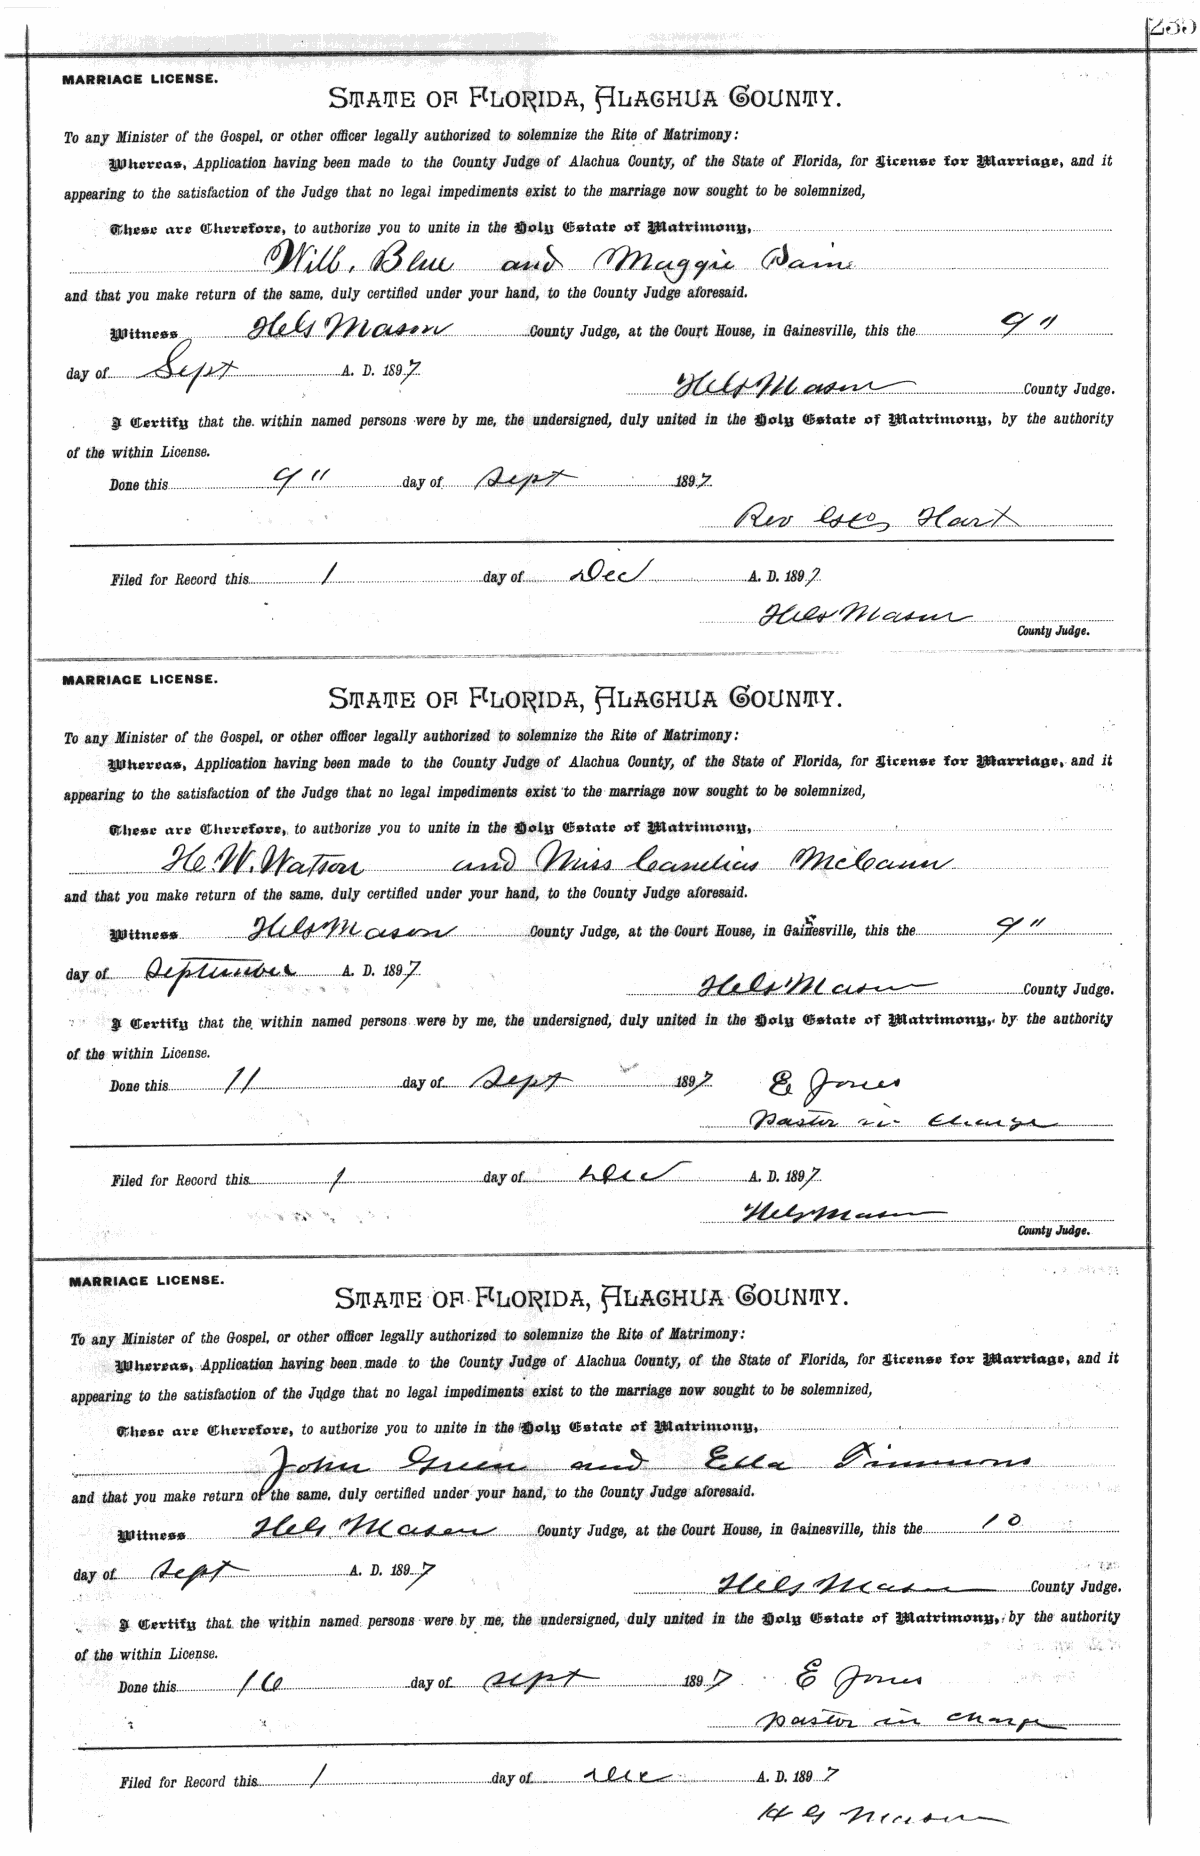 MARRIAGE LICENSE.
STATE OF FLORIDA, ALACHUA COUNTY.
To any Minister of the Gospel, or other officer legally authorized to solemnize the Rite of Matrimony:
Whereas, Application having been made to the County Judge of Alachua County, of the State of Florida, for License for Marriage, and it
appearing to the satisfaction of the Judge that no legal impediments exist to the marriage now sought to be solemnized,
These are Therefore, to authorize you to unite in the Holy Estate of Matrimony,
Will. Blue and Maggie
and that you make return of the same, duly certified under your hand, to the County Judge aforesaid.
Witness HG Mason County Judge, at the Court House, in Gainesville, this the 9"
day of Sept A. D. 1897
HG Mason County Judge.
I Certify that the within named persons were by me, the undersigned, duly united in the Holy Estate of Matrimony, by the authority
of the within License.
Done this 9" day of Sept 1897
Rev Hart
Filed for Record this 1 day of Dec A. D. 1897
HG Mason
County Judge.
MARRIAGE LICENSE.
STATE OF FLORIDA, ALACHUA COUNTY.
To any Minister of the Gospel, or other officer legally authorized to solemnize the Rite of Matrimony:
Whereas, Application having been made to the County Judge of Alachua County, of the State of Florida, for License for Marriage, and it
appearing to the satisfaction of the Judge that no legal impediments exist to the marriage now sought to be solemnized,
These are Therefore, to authorize you to unite in the Holy Estate of Matrimony,
H. W. Watson and Miss McCann
and that you make return of the same, duly certified under your hand, to the County Judge aforesaid.
Witness HG Mason County Judge, at the Court House, in Gainesville, this the 9"
day of September A. D. 1897
HG Mason County Judge.
I Certify that the within named persons were by me, the undersigned, duly united in the Holy Estate of Matrimony, by the authority
of the within License.
Done this 11 day of Sept 1897 E Jones
Pastor in Charge
Filed for Record this 1 day of Dec A. D. 1897
HG Mason
County Judge.
MARRIAGE LICENSE.
STATE OF FLORIDA, ALACHUA COUNTY.
To any Minister of the Gospel, or other officer legally authorized to solemnize the Rite of Matrimony:
Whereas, Application having been made to the County Judge of Alachua County, of the State of Florida, for License for Marriage, and it
appearing to the satisfaction of the Judge that no legal impediments exist to the marriage now sought to be solemnized,
These are Therefore, to authorize you to unite in the Holy Estate of Matrimony,
John Green and Ella Timmons
and that you make return of the same, duly certified under your hand, to the County Judge aforesaid.
Witness HG Mason County Judge, at the Court House, in Gainesville, this the 10
day of Sept A. D. 1897
HG Mason County Judge.
I Certify that the within named persons were by me, the undersigned, duly united in the Holy Estate of Matrimony, by the authority
of the within License.
Done this 16 day of Sept 1897 E Jones
Pastor in Charge
Filed for Record this 1 day of Dec A. D. 1897
HG Mason